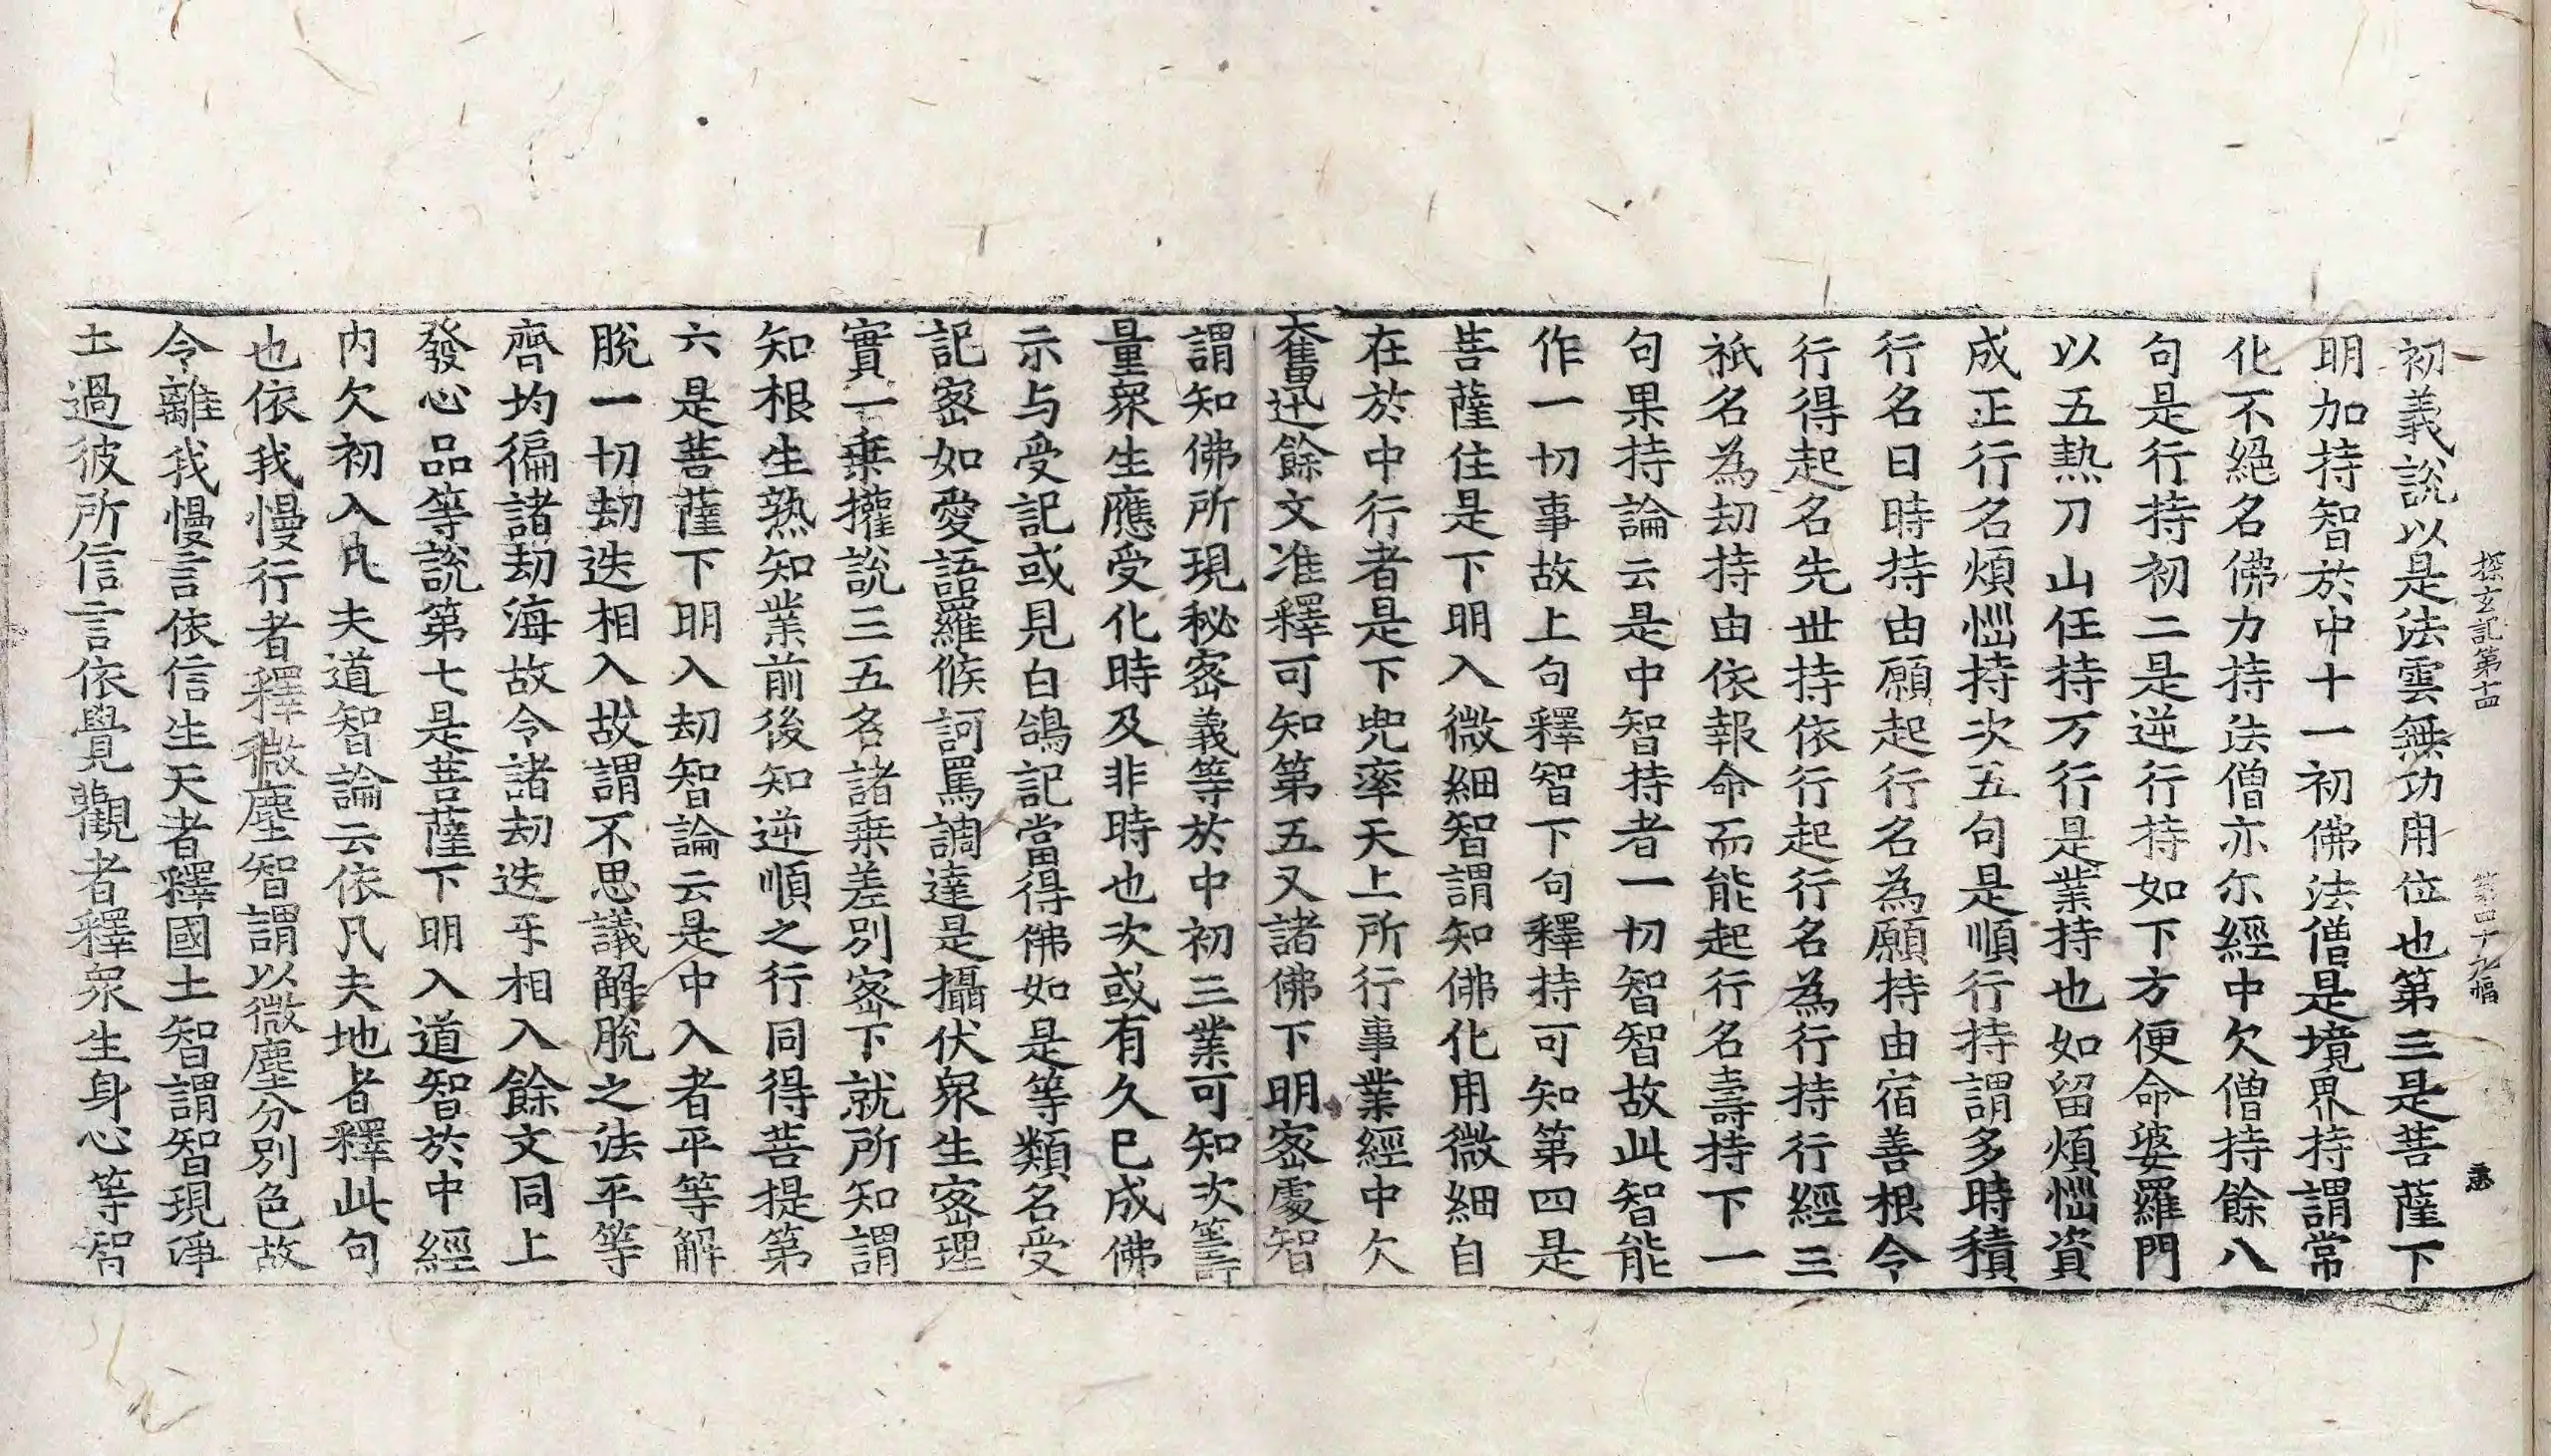 探玄記第十四 第四十九幅
初義說以是法雲無功用位也第三是菩薩下
明加持智於中十一初佛法僧是境界持謂常
化不絕名佛力持法僧亦尒經中欠僧持餘八
句是行持初二是逆行持如下方便命婆羅門
以五熱刀山任持万行是業持也如留煩惱資
成正行名煩惱持次五句是順行持謂多時積
行名曰時持由願起行名為願持由宿善根令
行得起名先世持依行起行名為行持行經三
祇名為劫持由依報命而能起行名壽持下一
句果持論云是中智持者一切智智故此智能
作一切事故上句釋智下句釋持可知第四是
菩薩住是下明入微細智謂知佛化用微細自
在於中行者是下兜率天上所行事業經中欠
奮迅餘文准釋可知第五又諸佛下明密處智
謂知佛所現秘密義等於中初三業可知次籌
量衆生應受化時及非時也次或有久已成佛
示与受記或見白鴿記當得佛如是等類名受
記密如愛語羅睺訶罵調達是攝伏衆生密理
實一乗攉說三五名諸乗差別密下就所知謂
知根生熟知業前後知逆順之行同得菩提第
六是菩薩下明入劫智論云是中入者平等解
脫一切劫迭相入故謂不思議解脫之法平等
齊均徧諸劫海故令諸劫迭㸦相入餘文同上
發心品等說第七是菩薩下明入道智於中經
内欠初入凡夫道智論云依凡夫地者釋此句
也依我慢行者釋微塵智謂以微塵分別色故
令離我慢言依信生天者釋國土智謂智現淨
土過彼所信言依覺觀者釋衆生身心等智